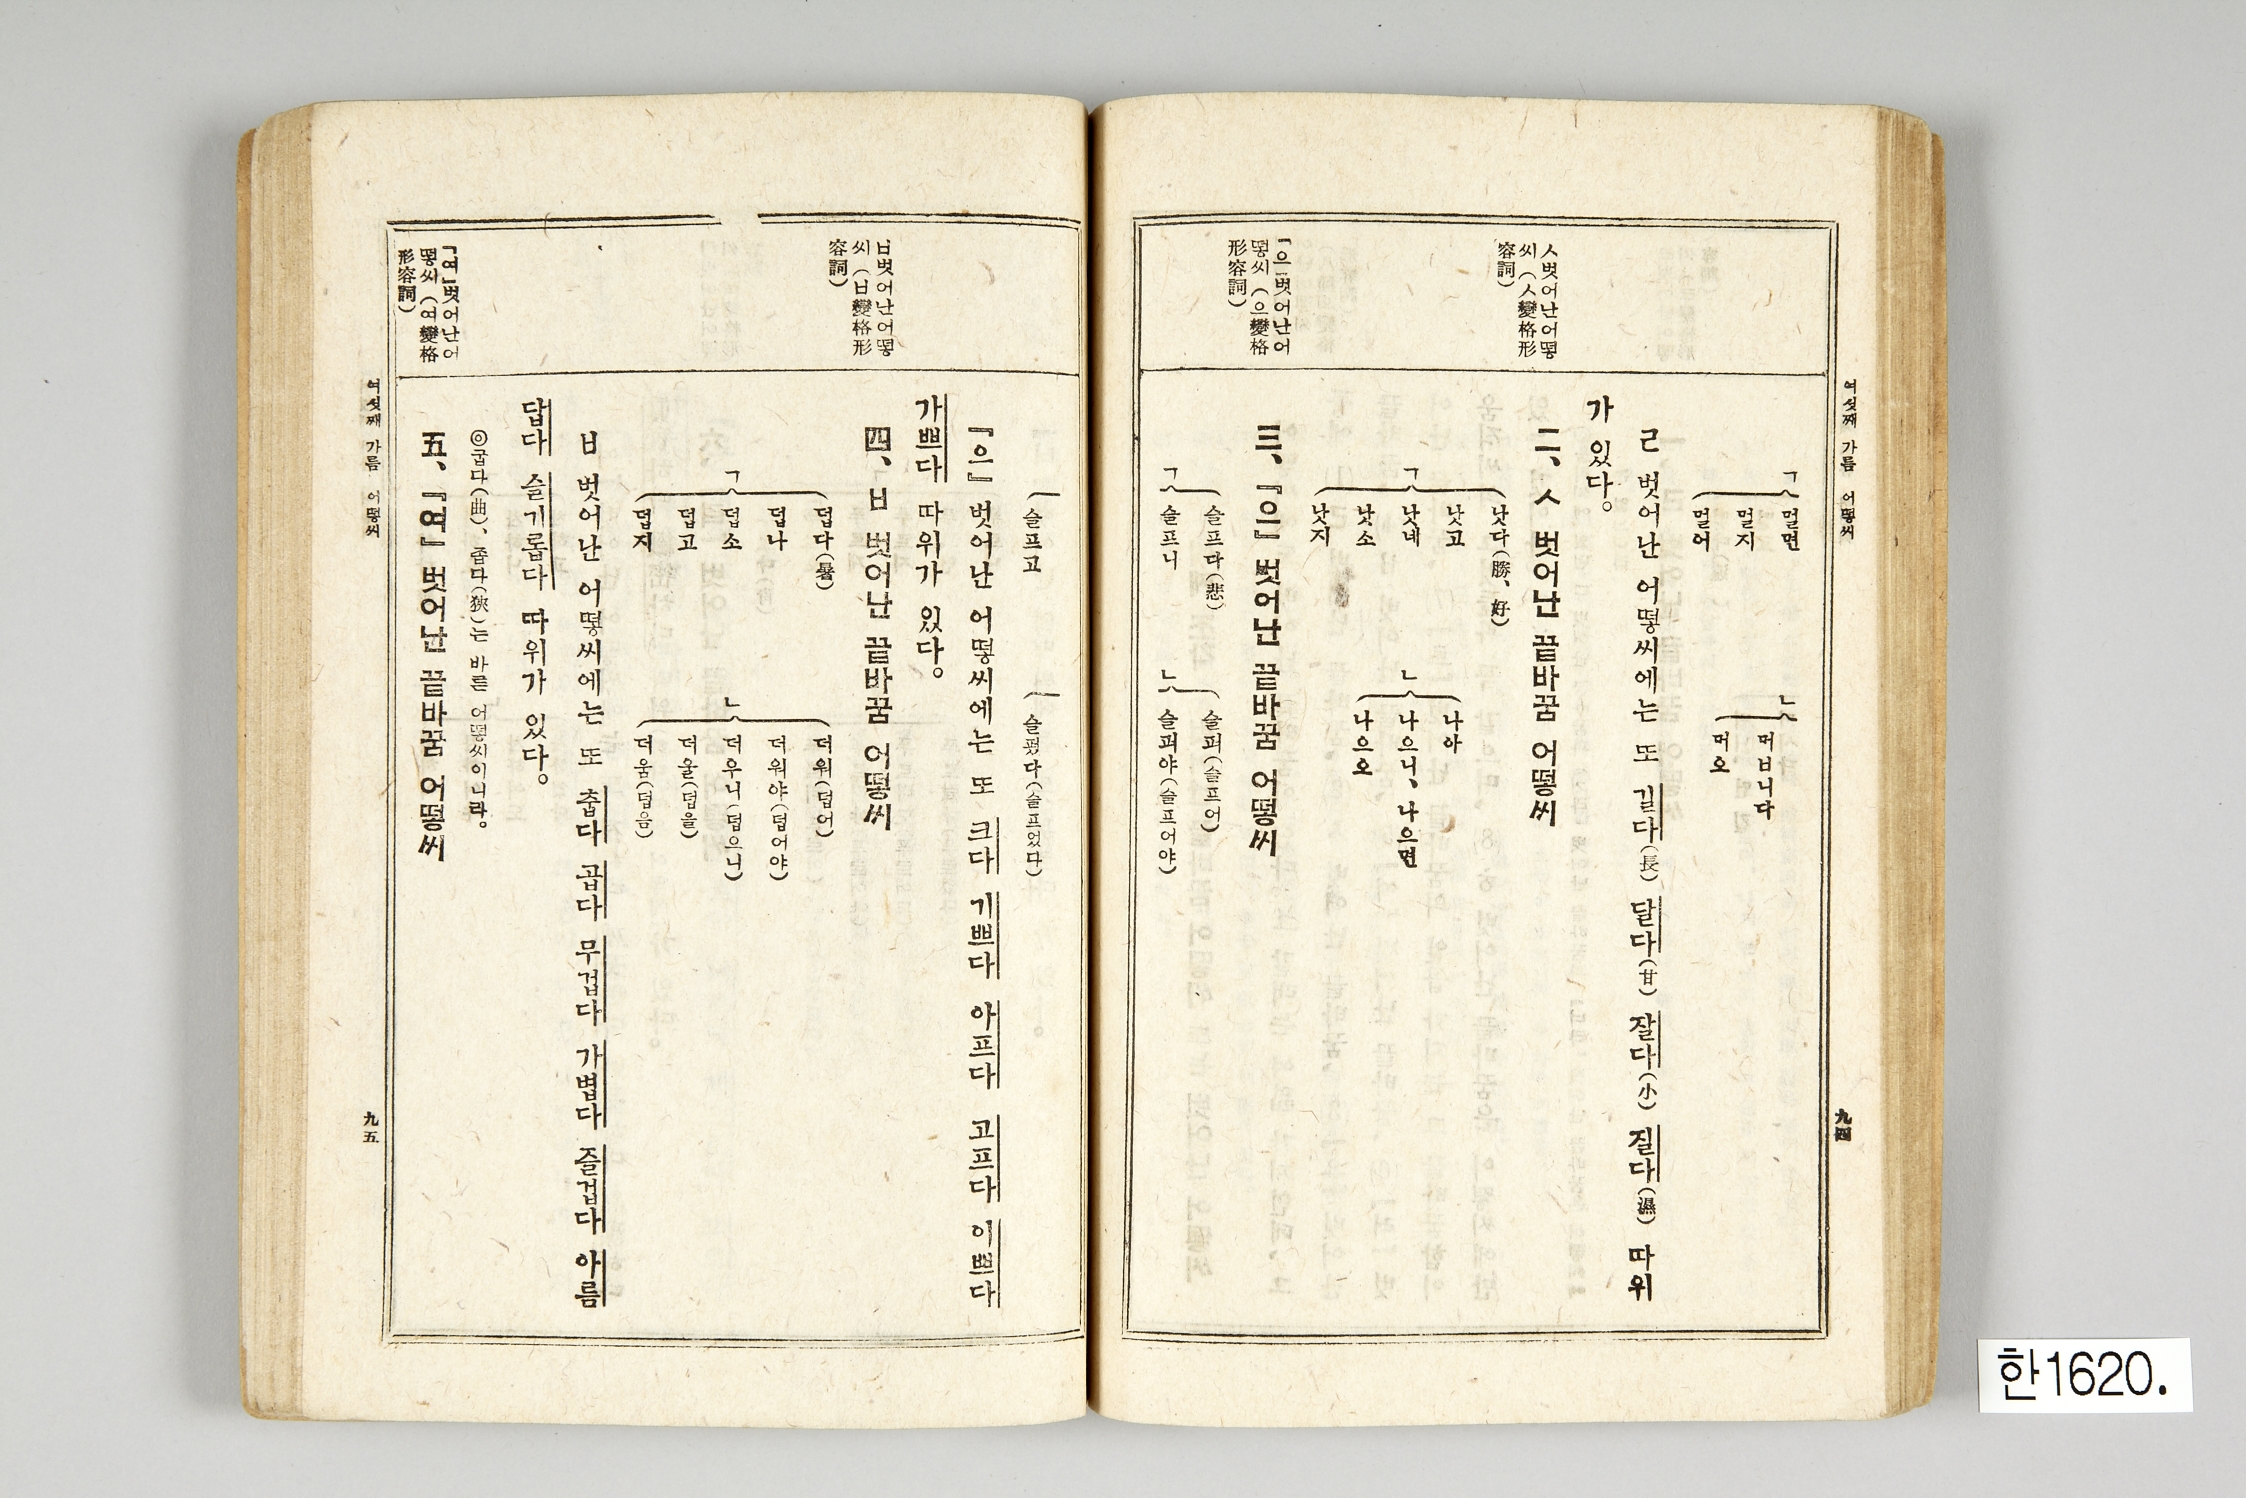 여섯째 가름 어떻씨
九四
ㅅ벗어난어떻
씨(ㅅ變格形
容詞)
「으」벗어난어
떻씨(으變格
形容詞)
ㄱ
멀면
멀지
멀어
ㄴ
머ㅂ니다
머오
ㄹ 벗어난 어떻씨에는 또 길다(長) 달다(甘) 잘다(小) 질다(濕) 따위
가 있다。
二、ㅅ 벗어난 끝바꿈 어떻씨
ㄱ
낫다(勝、好)
낫고
낫네
낫소
낫지
ㄴ
나아
나으니、나으면
나으오
三、『으』 벗어난 끝바꿈 어떻씨
ㄱ
슬프다(悲)
슬프니
ㄴ
슬퍼(슬프어)
슬퍼야(슬프어야)
ㅂ벗어난어떻
씨(ㅂ變格形
容詞)
「여」벗어난어
떻씨(여變格
形容詞)
슬프고
슬펐다(슬프었다)
『으』 벗어난 어떻씨에는 또 크다 기쁘다 아프다 고프다 이쁘다
가쁘다 따위가 있다。
四、ㅂ 벗어난 끝바꿈 어떻씨
ㄱ
덥다(暑)
덥나
덥소
덥고
덥지
ㄴ
더워(덥어)
더워야(덥어야)
더우니(덥으니)
더울(덥을)
더움(덥음)
ㅂ 벗어난 어떻씨에는 또 춥다 곱다 무겁다 가볍다 즐겁다 아름
답다 슬기롭다 따위가 있다。
◎굽다(曲)、좁다(狹)는 바른 어떻씨이니라。
五、『여』 벗어난 끝바꿈 어떻씨
여섯째 가름 어떻씨
九五
한1620.